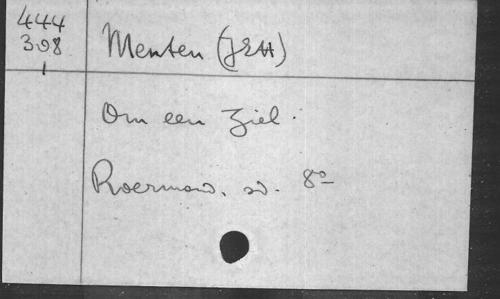 444
308
1
Menten (J E H)
Om een Ziel.
Roermond. sd. 8º